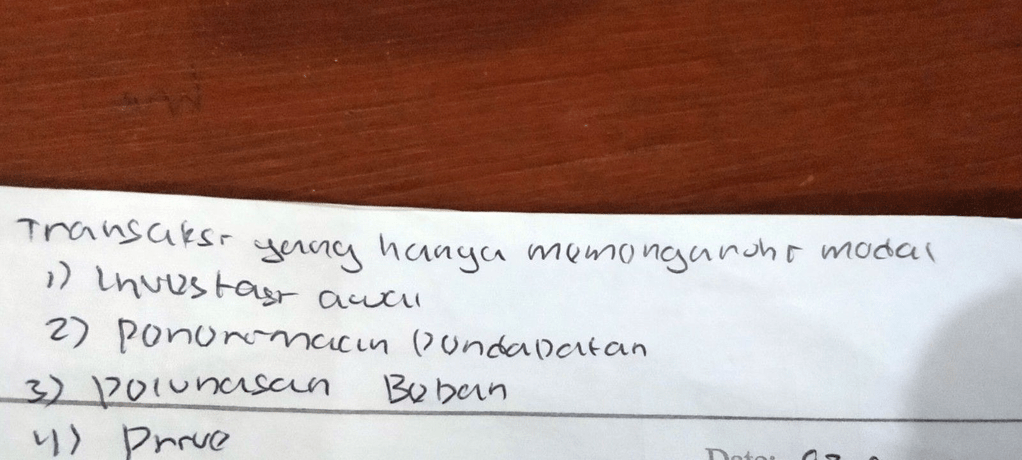 Transaksi yang hanya memengaruhi modal
1) Investasi awal
2) Penerimaan Pendapatan
3) Pelunasan Beban
4) Prive
Date: